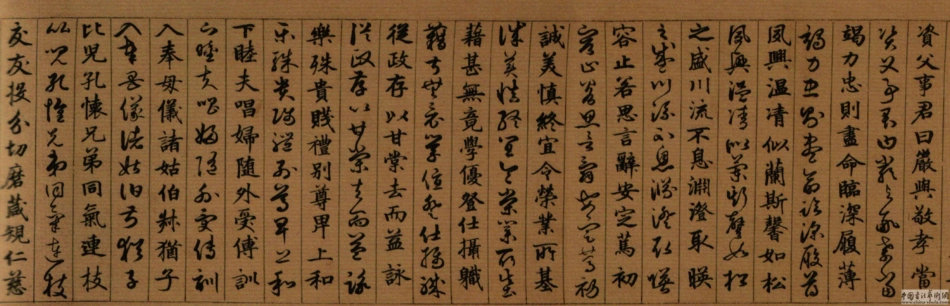 資父事君曰嚴與敬孝當
資父事君曰嚴與敬孝當
竭力忠則盡命臨深履薄
竭力忠則盡命臨深履薄
夙興温凊似蘭斯馨如松
夙興温凊似蘭斯馨如松
之盛川流不息淵澄取暎
之盛川流不息淵澄取暎
容止若思言辭安定篤初
容止若思言辭安定篤初
誠美慎終宜令榮業所基
誠美慎終宜令榮業所基
藉甚無竟學優登仕攝職
藉甚無竟學優登仕攝職
從政存以甘棠去而益詠
從政存以甘棠去而益詠
樂殊貴賤禮別尊卑上和
樂殊貴賤禮別尊卑上和
下睦夫唱婦隨外受傅訓
下睦夫唱婦隨外受傅訓
入奉母儀諸姑伯叔猶子
入奉母儀諸姑伯叔猶子
比兒孔懷兄弟同氣連枝
比兒孔懷兄弟同氣連枝
交友投分切磨箴規仁慈